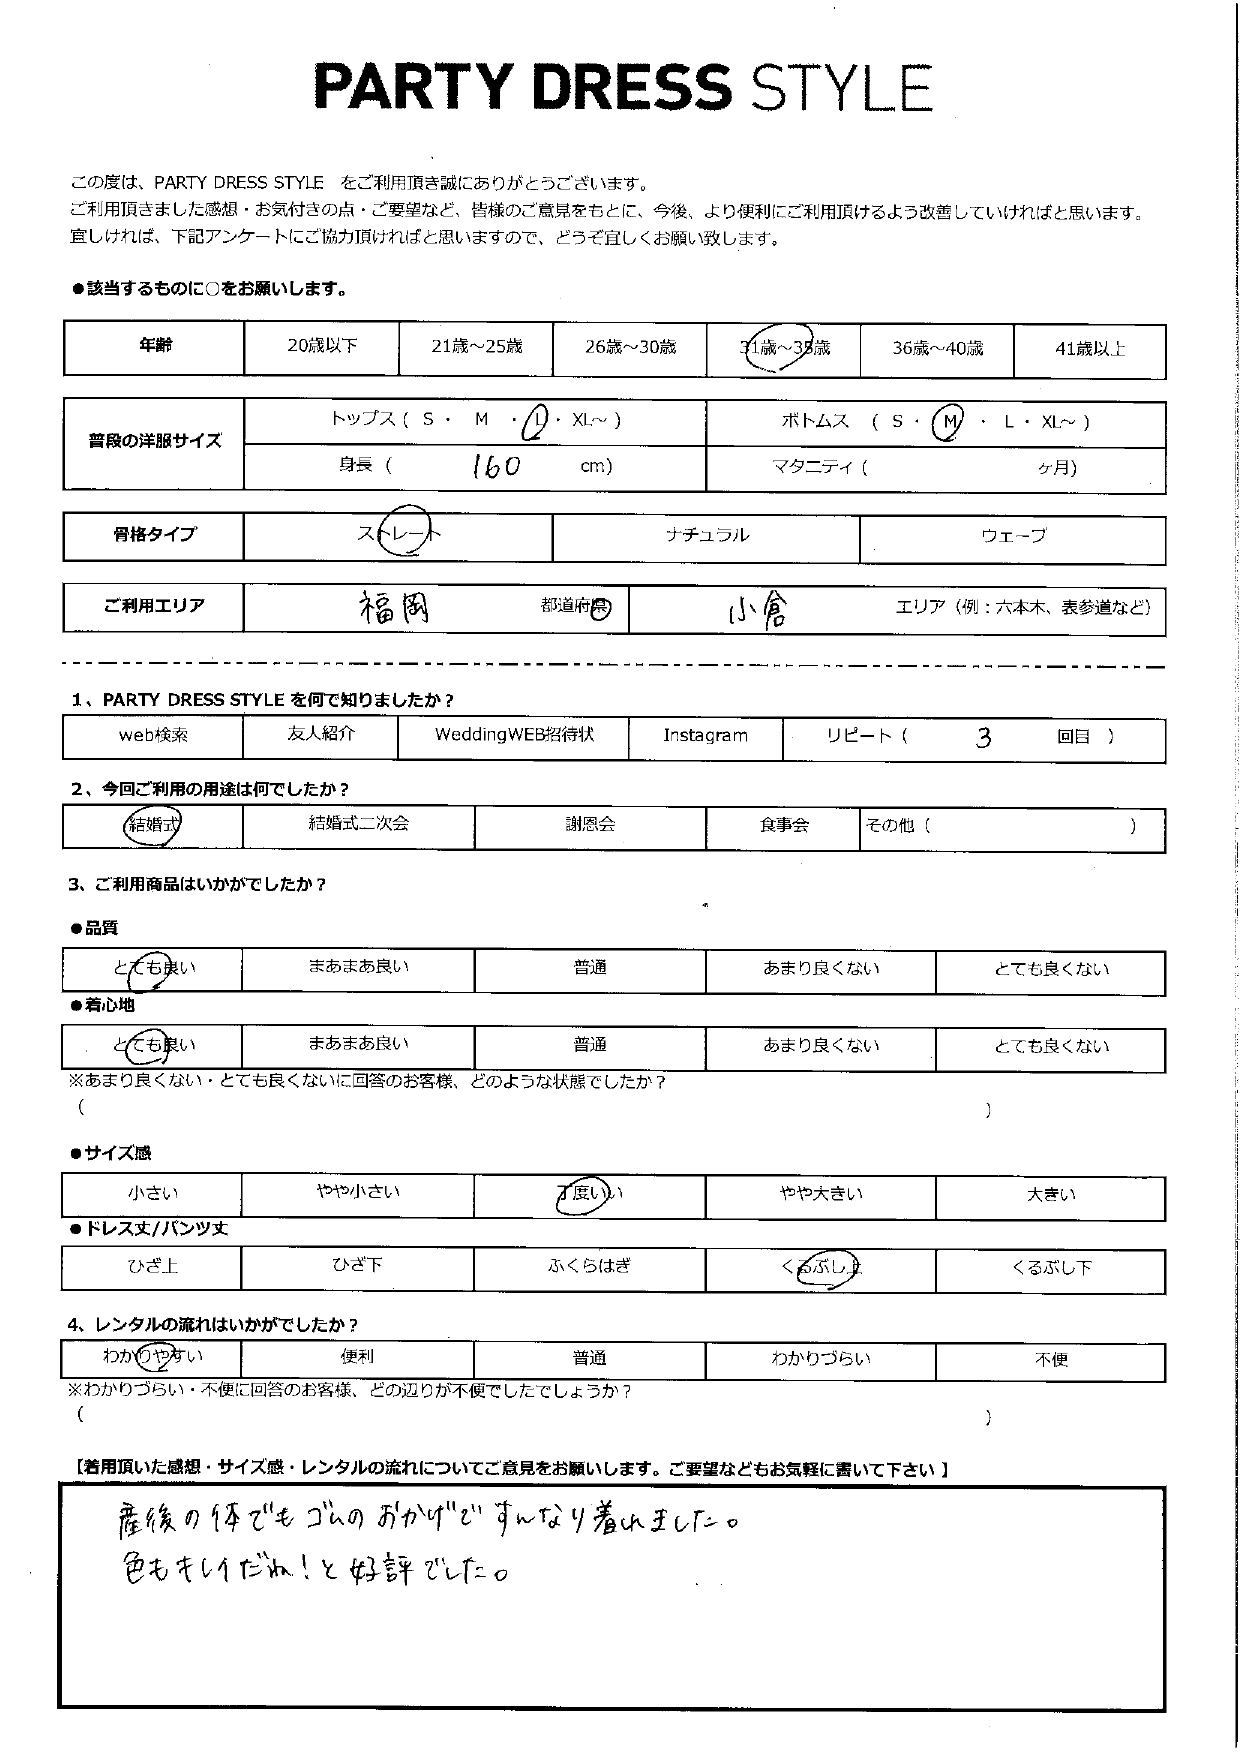 PARTY DRESS STYLE
この度は、PARTY DRESS STYLE をご利用頂き誠にありがとうございます。
ご利用頂きました感想・お気付きの点・ご要望など、皆様のご意見をもとに、今後、より便利にご利用頂けるよう改善していければと思います。
宜しければ、下記アンケートにご協力頂ければと思いますので、どうぞ宜しくお願い致します。
●該当するものに○をお願いします。
年齢 20歳以下 21歳～25歳 26歳～30歳 31歳～35歳 36歳～40歳 41歳以上
普段の洋服サイズ トップス ( S ・ M ・ L ・ XL～ ) ボトムス ( S ・ M ・ L ・ XL～ )
身長 ( 160 cm) マタニティ ( ヶ月)
骨格タイプ ストレート ナチュラル ウェーブ
ご利用エリア 福岡 都道府県 小倉 エリア（例：六本木、表参道など）
1、PARTY DRESS STYLE を何で知りましたか？
web検索 友人紹介 WeddingWEB招待状 Instagram リピート ( 3 回目 )
2、今回ご利用の用途は何でしたか？
結婚式 結婚式二次会 謝恩会 食事会 その他 ( )
3、ご利用商品はいかがでしたか？
●品質
とても良い まあまあ良い 普通 あまり良くない とても良くない
●着心地
とても良い まあまあ良い 普通 あまり良くない とても良くない
※あまり良くない・とても良くないに回答のお客様、どのような状態でしたか？
( )
●サイズ感
小さい やや小さい 丁度いい やや大きい 大きい
●ドレス丈/パンツ丈
ひざ上 ひざ下 ふくらはぎ くるぶし上 くるぶし下
4、レンタルの流れはいかがでしたか？
わかりやすい 便利 普通 わかりづらい 不便
※わかりづらい・不便に回答のお客様、どの辺りが不便でしたでしょうか？
( )
【着用頂いた感想・サイズ感・レンタルの流れについてご意見をお願いします。ご要望などもお気軽に書いて下さい 】
産後の体でもゴムのおかげですんなり着れました。
色もキレイだね！と好評でした。